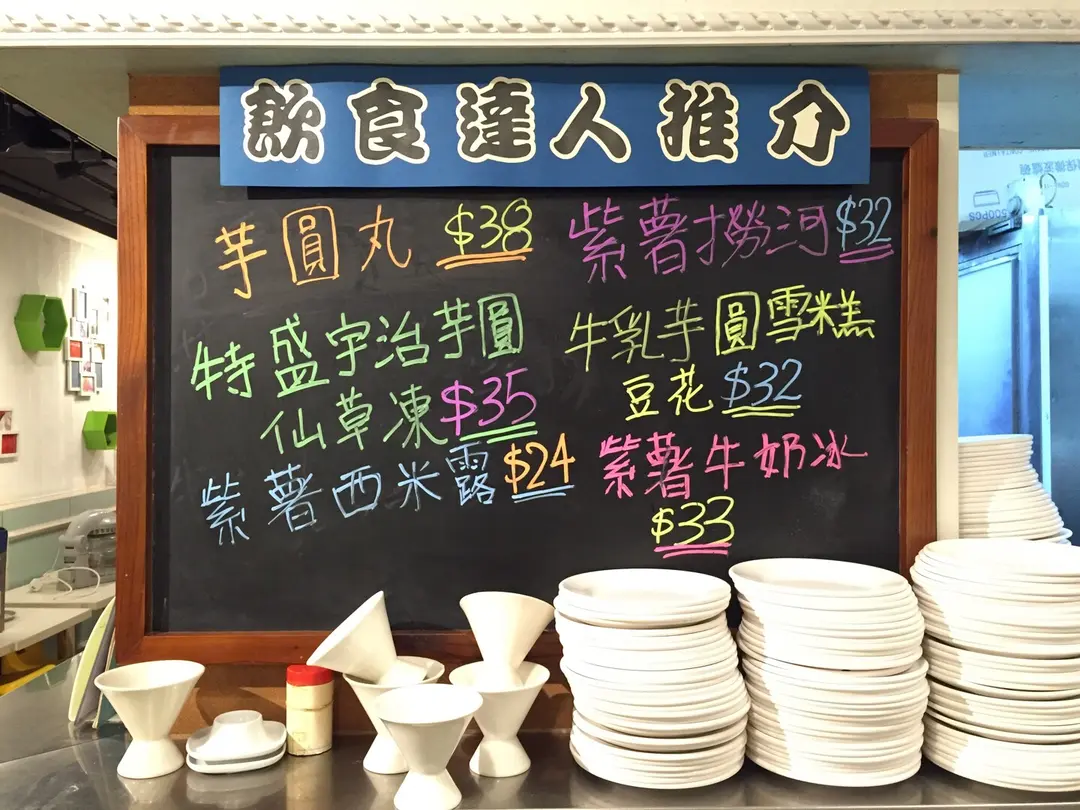 飲食達人推介
芋圓丸 $38
特盛宇治芋圓
仙草凍 $35
紫薯西米露 $24
紫薯撈河 $32
牛乳芋圓雪糕
豆花 $32
紫薯牛奶冰
$33
500PCS